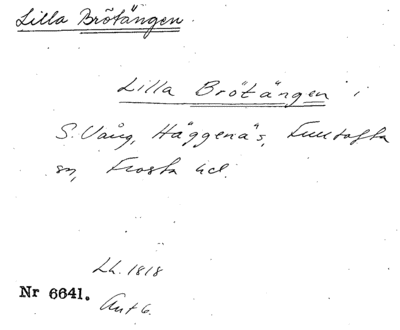 Lilla Brötängen.
Lilla Brötängen i
S. Vång, Häggenäs, Fulltofta
sn, Frosta hd.
Lh. 1818
Nr 6641.
Ant 6.